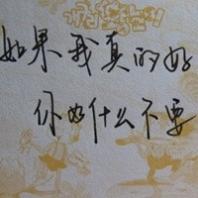 如果我真的好
你为什么不要